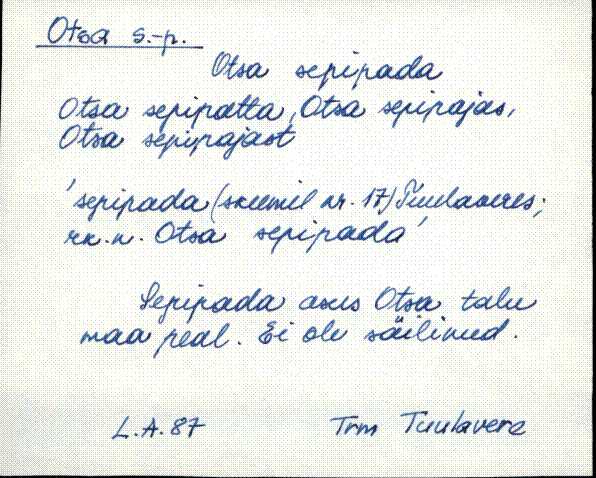 Otsa s.-p.
Otsa sepipada
Otsa sepipatta, Otsa sepipajas,
Otsa sepipajast
'sepipada (skeemil nr. 17) Tuulaveres;
rk.n. Otsa sepipada'
Sepipada asus Otsa talu
maa peal. Ei ole säilinud.
L.A. 87 Trm Tuulavere